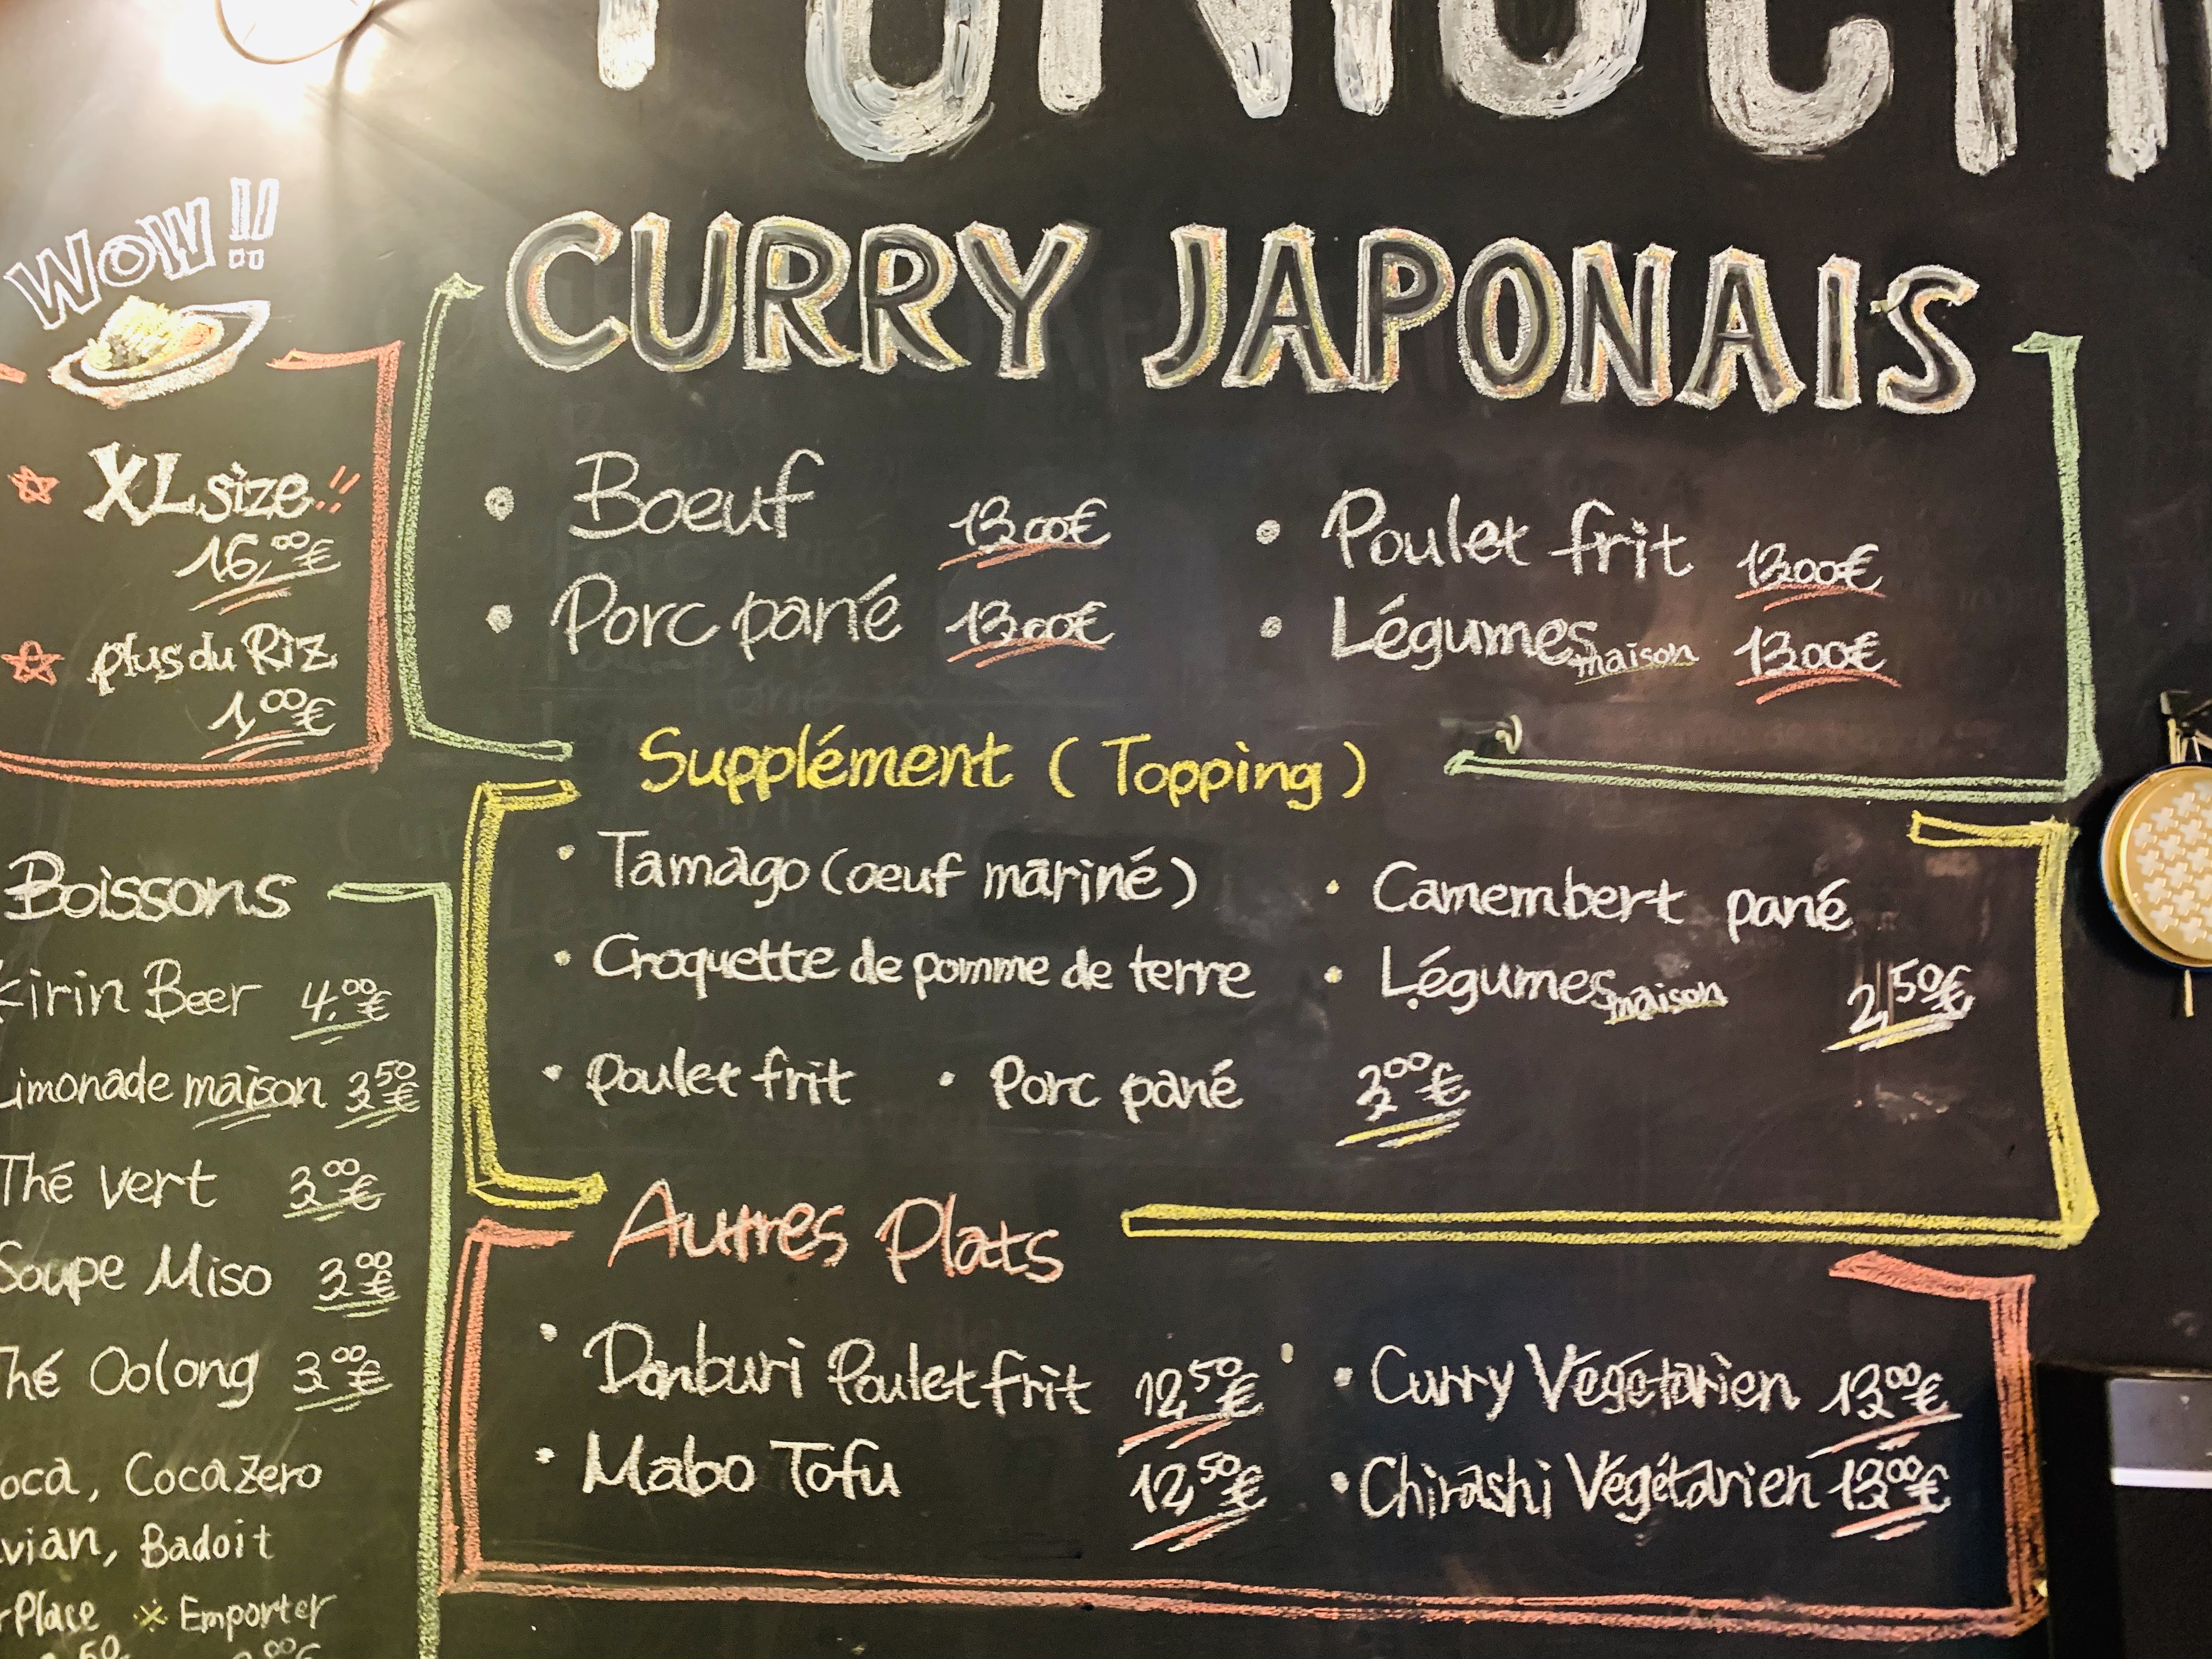 WOW!!
XL size!!
16,00€
plus du Riz
1,00€
Boissons
Kirin Beer 4,00€
Limonade maison 3,50€
Thé vert 3,00€
Soupe Miso 3,00€
Thé Oolong 3,00€
Coca, Coca Zero
Evian, Badoit
Place ※ Emporter
CURRY JAPONAIS
• Boeuf 13,00€
• Porc pané 13,00€
• Poulet frit 13,00€
• Légumes maison 13,00€
Supplément (Topping)
• Tamago (oeuf mariné)
• Camembert pané
• Croquette de pomme de terre
• Légumes maison 2,50€
• Poulet frit • Porc pané 3,00€
Autres Plats
• Donburi Poulet frit 12,50€
• Curry Végétarien 13,00€
• Mabo Tofu 12,50€
• Chirashi Végétarien 13,00€